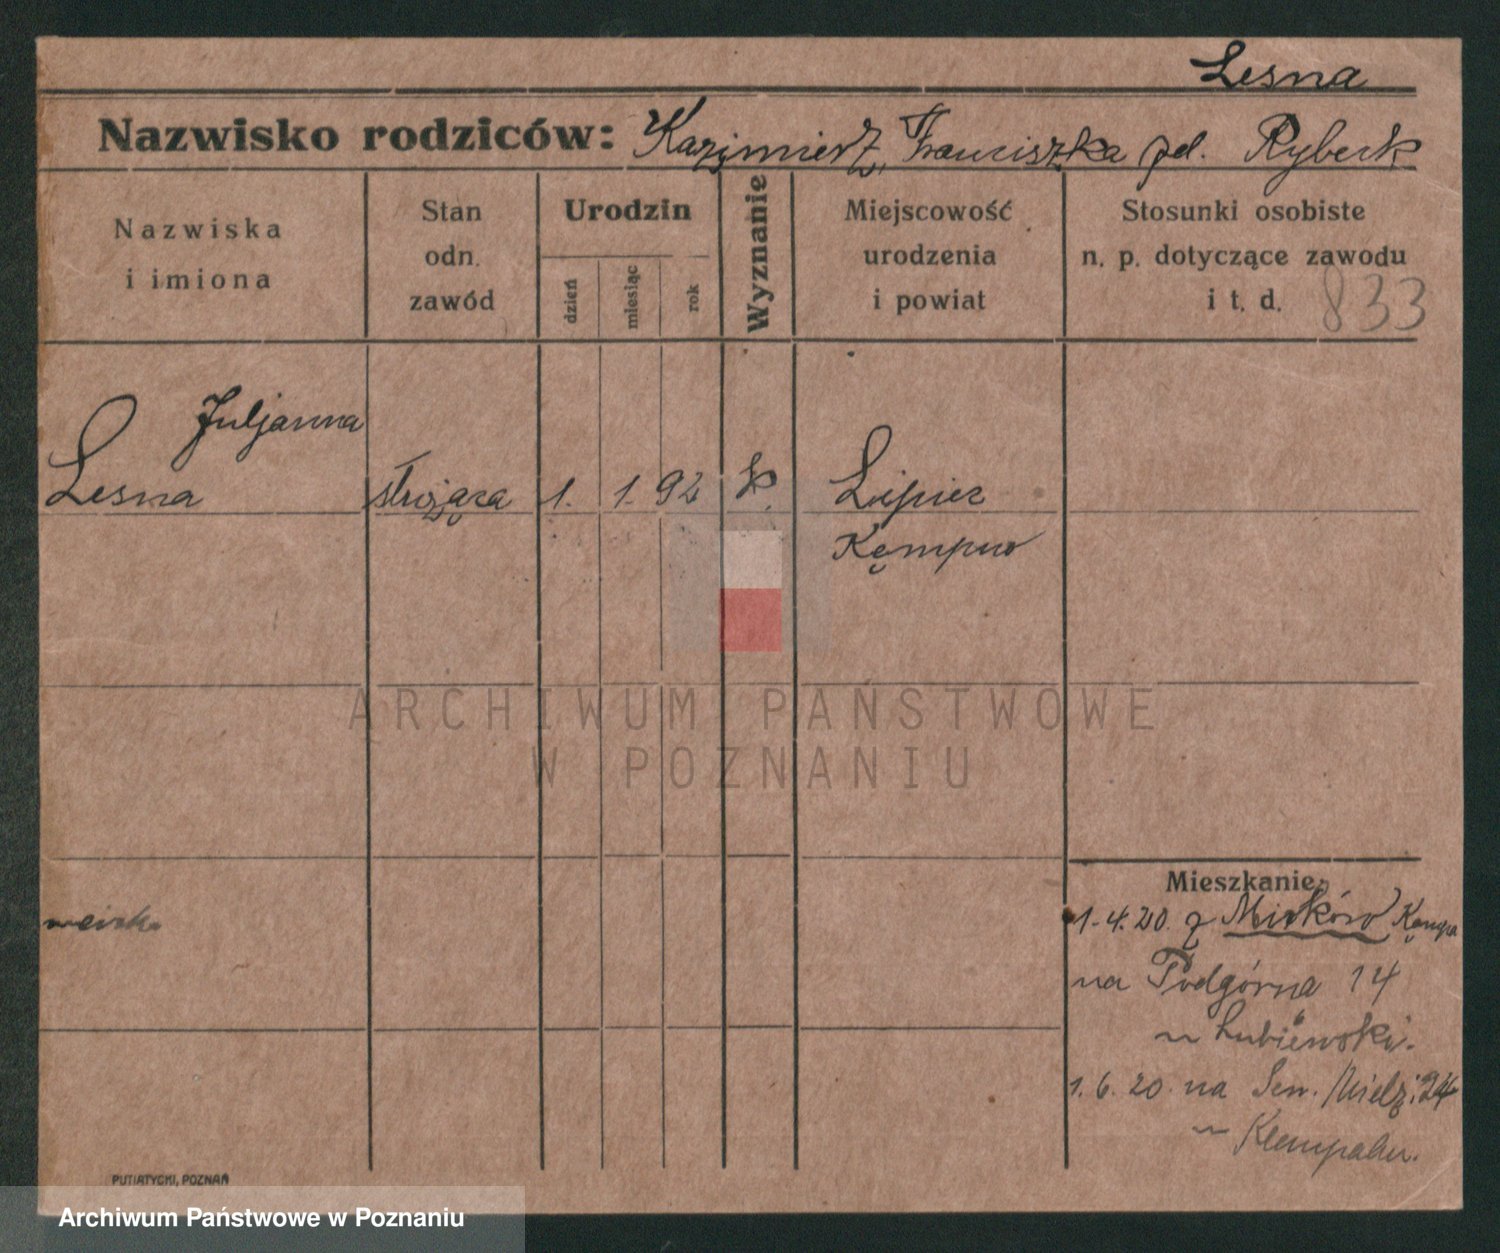 Lesna
Nazwisko rodziców: Kazimierz, Franciszka pd. Rybeck
Nazwiska
i imiona
Stan
odn.
zawód
Urodzin
dzień
miesiąc
rok
Wyznanie
Miejscowość
urodzenia
i powiat
Stosunki osobiste
n. p. dotyczące zawodu
i t. d.
833
Juljanna
Lesna służąca 1. 1. 92 k. Lipiec
Kempno
ARCHIWUM PAŃSTWOWE
W POZNANIU
Mieszkanie:
1.4.20. z Mirków Kempa
na Podgórna 14
~ Lubiewski.
1.6.20 na Sen. Mielż. 24
~
PUTIATYCKI, POZNAŃ
Archiwum Państwowe w Poznaniu